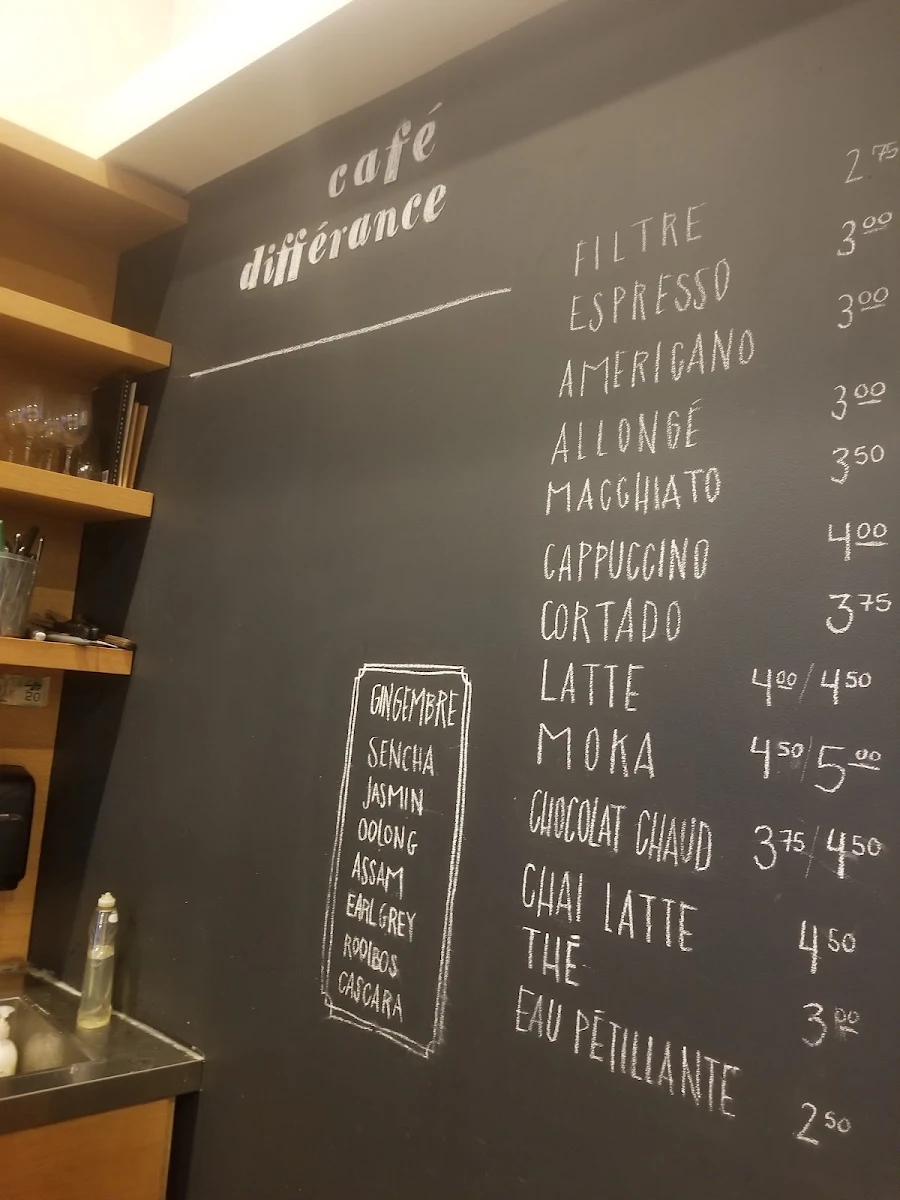 café
différance
FILTRE 2 75
ESPRESSO 3 00
AMERICANO 3 00
ALLONGÉ 3 00
MACCHIATO 3 50
CAPPUCCINO 4 00
CORTADO 3 75
LATTE 4 00/4 50
MOKA 4 50/5 00
CHOCOLAT CHAUD 3 75/4 50
CHAI LATTE 4 50
THÉ 3 00
EAU PÉTILLANTE 2 50
GINGEMBRE
SENCHA
JASMIN
OOLONG
ASSAM
EARL GREY
ROOIBOS
CASCARA
20